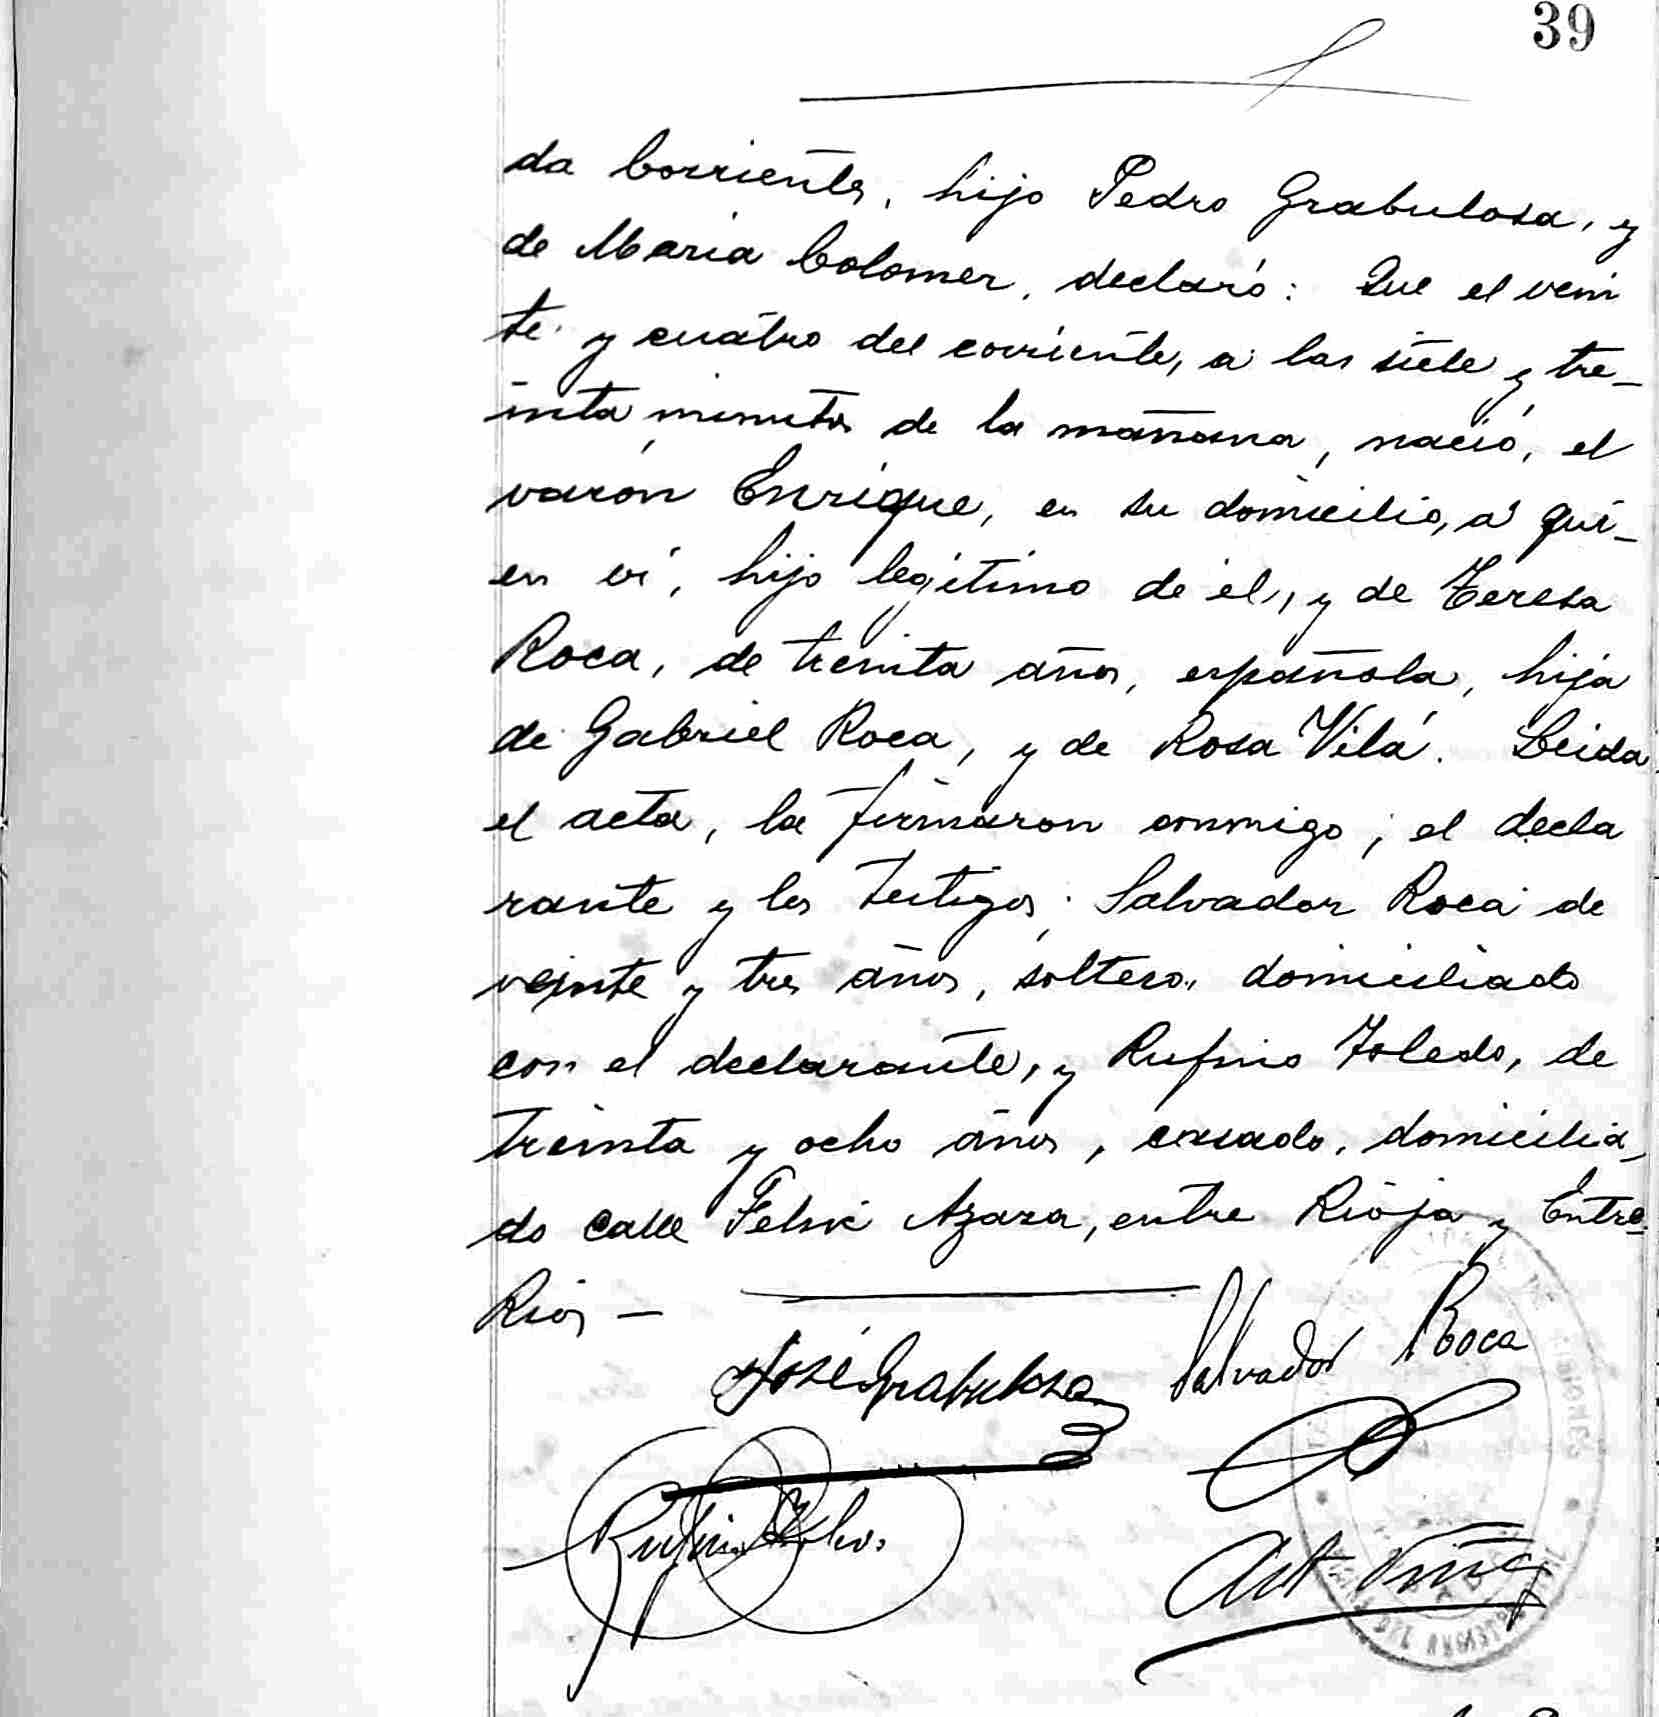 39
da Corriente, hijo Pedro Grabulosa, y
de Maria Colomer, declaró: Que el vein
te y cuatro del corriente, á las siete y tre-
inta minutos de la mañana, nació, el
varón Enrique, en su domicilio, á qui-
en ví, hijo legítimo de él, y de Teresa
Roca, de treinta años, española, hija
de Gabriel Roca, y de Rosa Vilá. Leida
el acta, la firmaron conmigo; el decla
rante y los testigos: Salvador Roca de
veinte y tres años, soltero, domiciliado
con el declarante, y Rufino Toledo, de
treinta y ocho años, casado, domicilia-
do calle Felix Azara, entre Rioja y Entre
Rios —
José Grabulosa Salvador Roca
Rufino